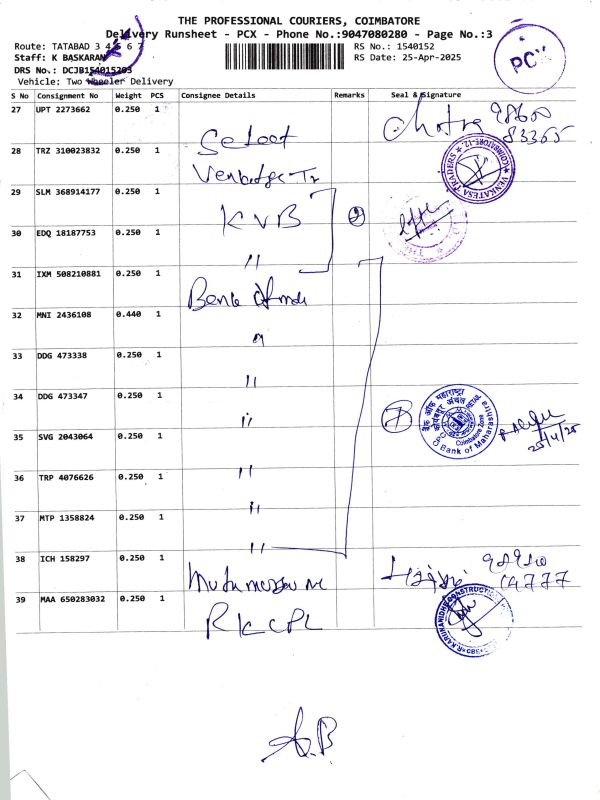 THE PROFESSIONAL COURIERS, COIMBATORE
Delivery Runsheet - PCX - Phone No.:9047080280 - Page No.:3
Route: TATABAD 3 4 5 6 7
Staff: K BASKARAN
DRS No.: DCJB154015203
Vehicle: Two Wheeler Delivery
RS No.: 1540152
RS Date: 25-Apr-2025
PCX
S No Consignment No Weight PCS Consignee Details Remarks Seal & Signature
27 UPT 2273662 0.250 1 Select
28 TRZ 310023832 0.250 1
VENKATESA TRADERS
29 SLM 368914177 0.250 1 KVB
30 EDQ 18187753 0.250 1 "
31 IXM 508210881 0.250 1
32 MNI 2436108 0.440 1 "
33 DDG 473338 0.250 1 "
34 DDG 473347 0.250 1 "
7
बैंक ऑफ महाराष्ट्र
कोयंबतूर अंचल
Coimbatore Zone
Bank of Maharashtra
25/4/25
35 SVG 2043064 0.250 1 "
36 TRP 4076626 0.250 1 "
37 MTP 1358824 0.250 1 "
38 ICH 158297 0.250 1
39 MAA 650283032 0.250 1 RKCPL